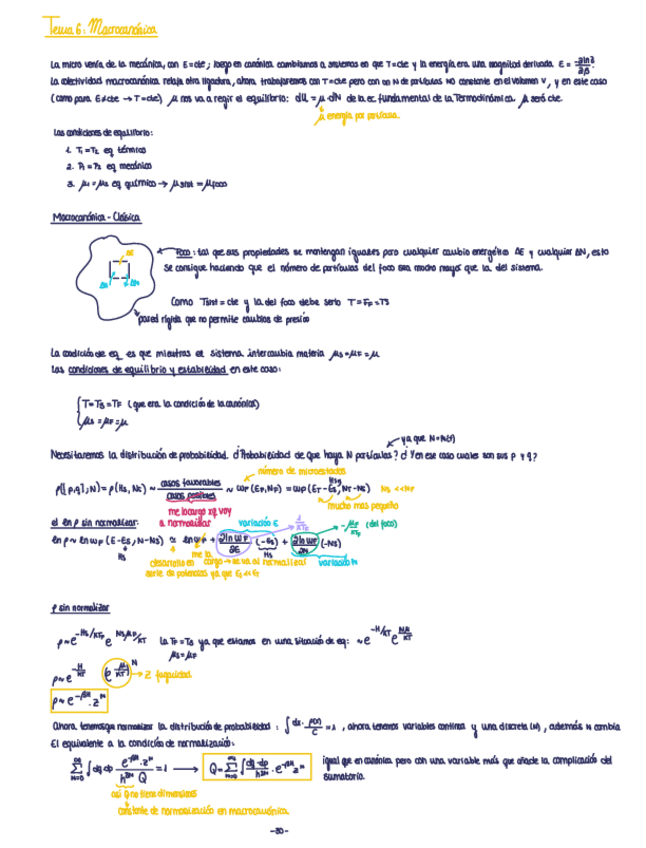 Tema 6: Macrocanónica
La micro venía de la mecánica, con E=cte; luego en canónica cambiamos a sistemas en que T=cte y la energía era una magnitud derivada. E = -∂lnZ/∂β.
La colectividad macrocanónica relaja otra ligadura, ahora trabajaremos con T=cte pero con un N de partículas NO constante en el volumen V, y en este caso
(como para E≠cte → T=cte) μ nos va a regir el equilibrio: dU = μ·dN de la ec. fundamental de la Termodinámica. μ será cte.
μ energía por partícula.
Las condiciones de equilibrio:
1. T₁=T₂ eq térmico
2. P₁=P₂ eq mecánico
3. μ₁=μ₂ eq químico → μsist = μfoco
Macrocanónica - Clásica
ΔE
ΔN
ΔN
Foco: tal que sus propiedades se mantengan iguales para cualquier cambio energético ΔE y cualquier ΔN, esto
se consigue haciendo que el número de partículas del foco sea mucho mayor que la del sistema.
Como Tsist = cte y la del foco debe serlo T=TF=TS
pared rígida que no permite cambios de presión
La condición de eq es que mientras el sistema intercambia materia μs=μF=μ
Las condiciones de equilibrio y estabilidad en este caso:
T=TS=TF (que era la condición de la canónica)
μs=μF=μ
ya que N=N(t)
Necesitaremos la distribución de probabilidad. ¿Probabilidad de que haya N partículas? ¿Y en ese caso cuales son sus p y q?
número de microestados
ρ({p,q};N) = ρ(Hs,Ns) ~ casos favorables / casos posibles ~ ωF(EF,NF) = ωF(ET-Es, NT-Ns) Ns<<NF
Hs
mucho mas pequeño
me lo cargo xq voy
a normalizar
el ln ρ sin normalizar:
variación E
1/KTF
-μF/KTF (del foco)
ln ρ ~ ln ωF (E-Es, N-Ns) ≃ ln ωF + ∂lnωF/∂E (-Es) + ∂lnωF/∂N (-Ns)
Hs
Hs
me la
cargo → se va al normalizar
variación N
desarrollo en
serie de potencias ya que Es<<ET
ρ sin normalizar
ρ~e^(-Hs/KTF) e^(NsμF/KT) La TF=TS ya que estamos en una situación de eq: ~e^(-H/KT) e^(Nμ/KT)
μs=μF
ρ~e^(-H/KT) (e^(μ/KT))^N → z fugacidad
ρ~e^(-βH)·z^N
Ahora tenemos que normalizar la distribución de probabilidad: ∫dx·ρ(x)/C = 1, ahora tenemos variables continua y una discreta (N), además N cambia
El equivalente a la condición de normalización:
∑_(N=0)^∞ ∫dq dp e^(-βH)·z^N / h^(3N) Q = 1 → Q = ∑_(N=0)^∞ ∫ dq·dp/h^(3N) · e^(-βH) z^N
igual que en canónica pero con una variable más que añade la complicación del
sumatorio.
así Q no tiene dimensiones
constante de normalización en macrocanónica.
-30-